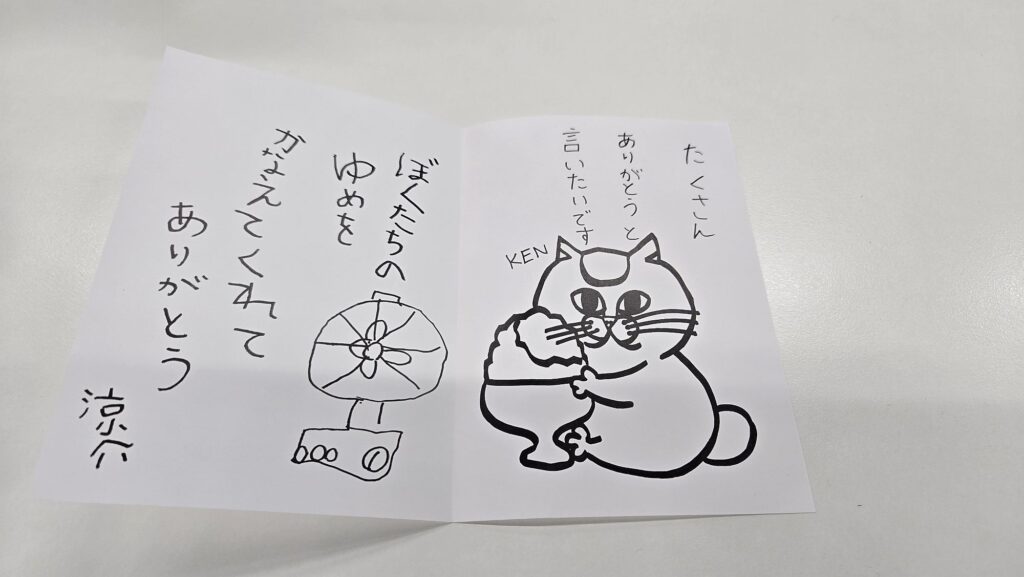 たくさん
ありがとうと
言いたいです
KEN
ぼくたちの
ゆめを
かなえてくれて
ありがとう
涼介